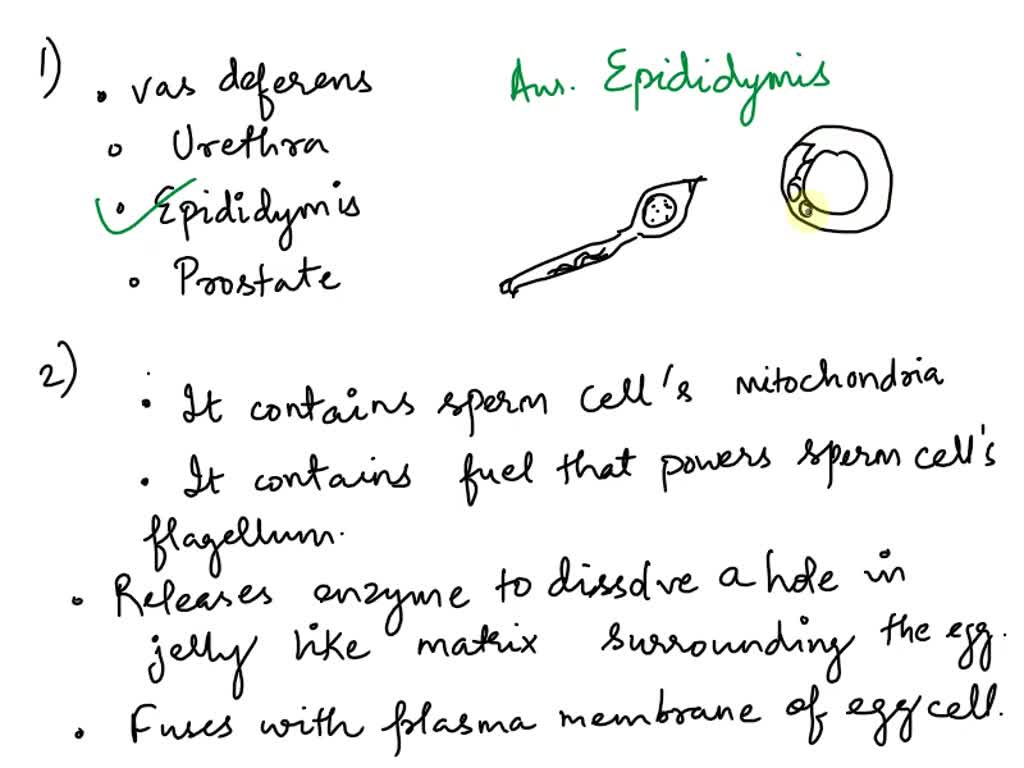 1) • vas deferens
Ans. Epididymis
Urethra
Epididymis
Prostate
2)
• It contains sperm cell's mitochondria
• It contains fuel that powers sperm cell's
flagellum.
• Releases enzyme to dissolve a hole in
jelly like matrix surrounding the egg.
• Fuses with plasma membrane of egg cell.